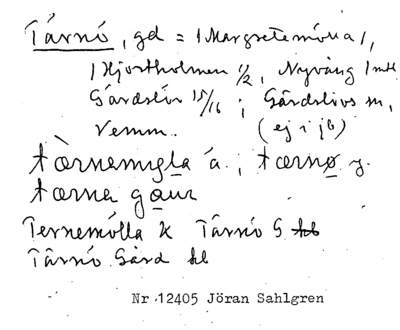 Tärnö, gd = 1 Margretemölla 1,
1 Hjortholmen 1/2, Nyvång 1 mtl
Gärdslöv 15/16; Gärdslövs sn,
Vemm. (ej i jb)
tærnemyla ä.; tærnø y.
tærna gaur
Ternemölla k Tärnö G
Tärnö Gård hl
Nr 12405 Jöran Sahlgren